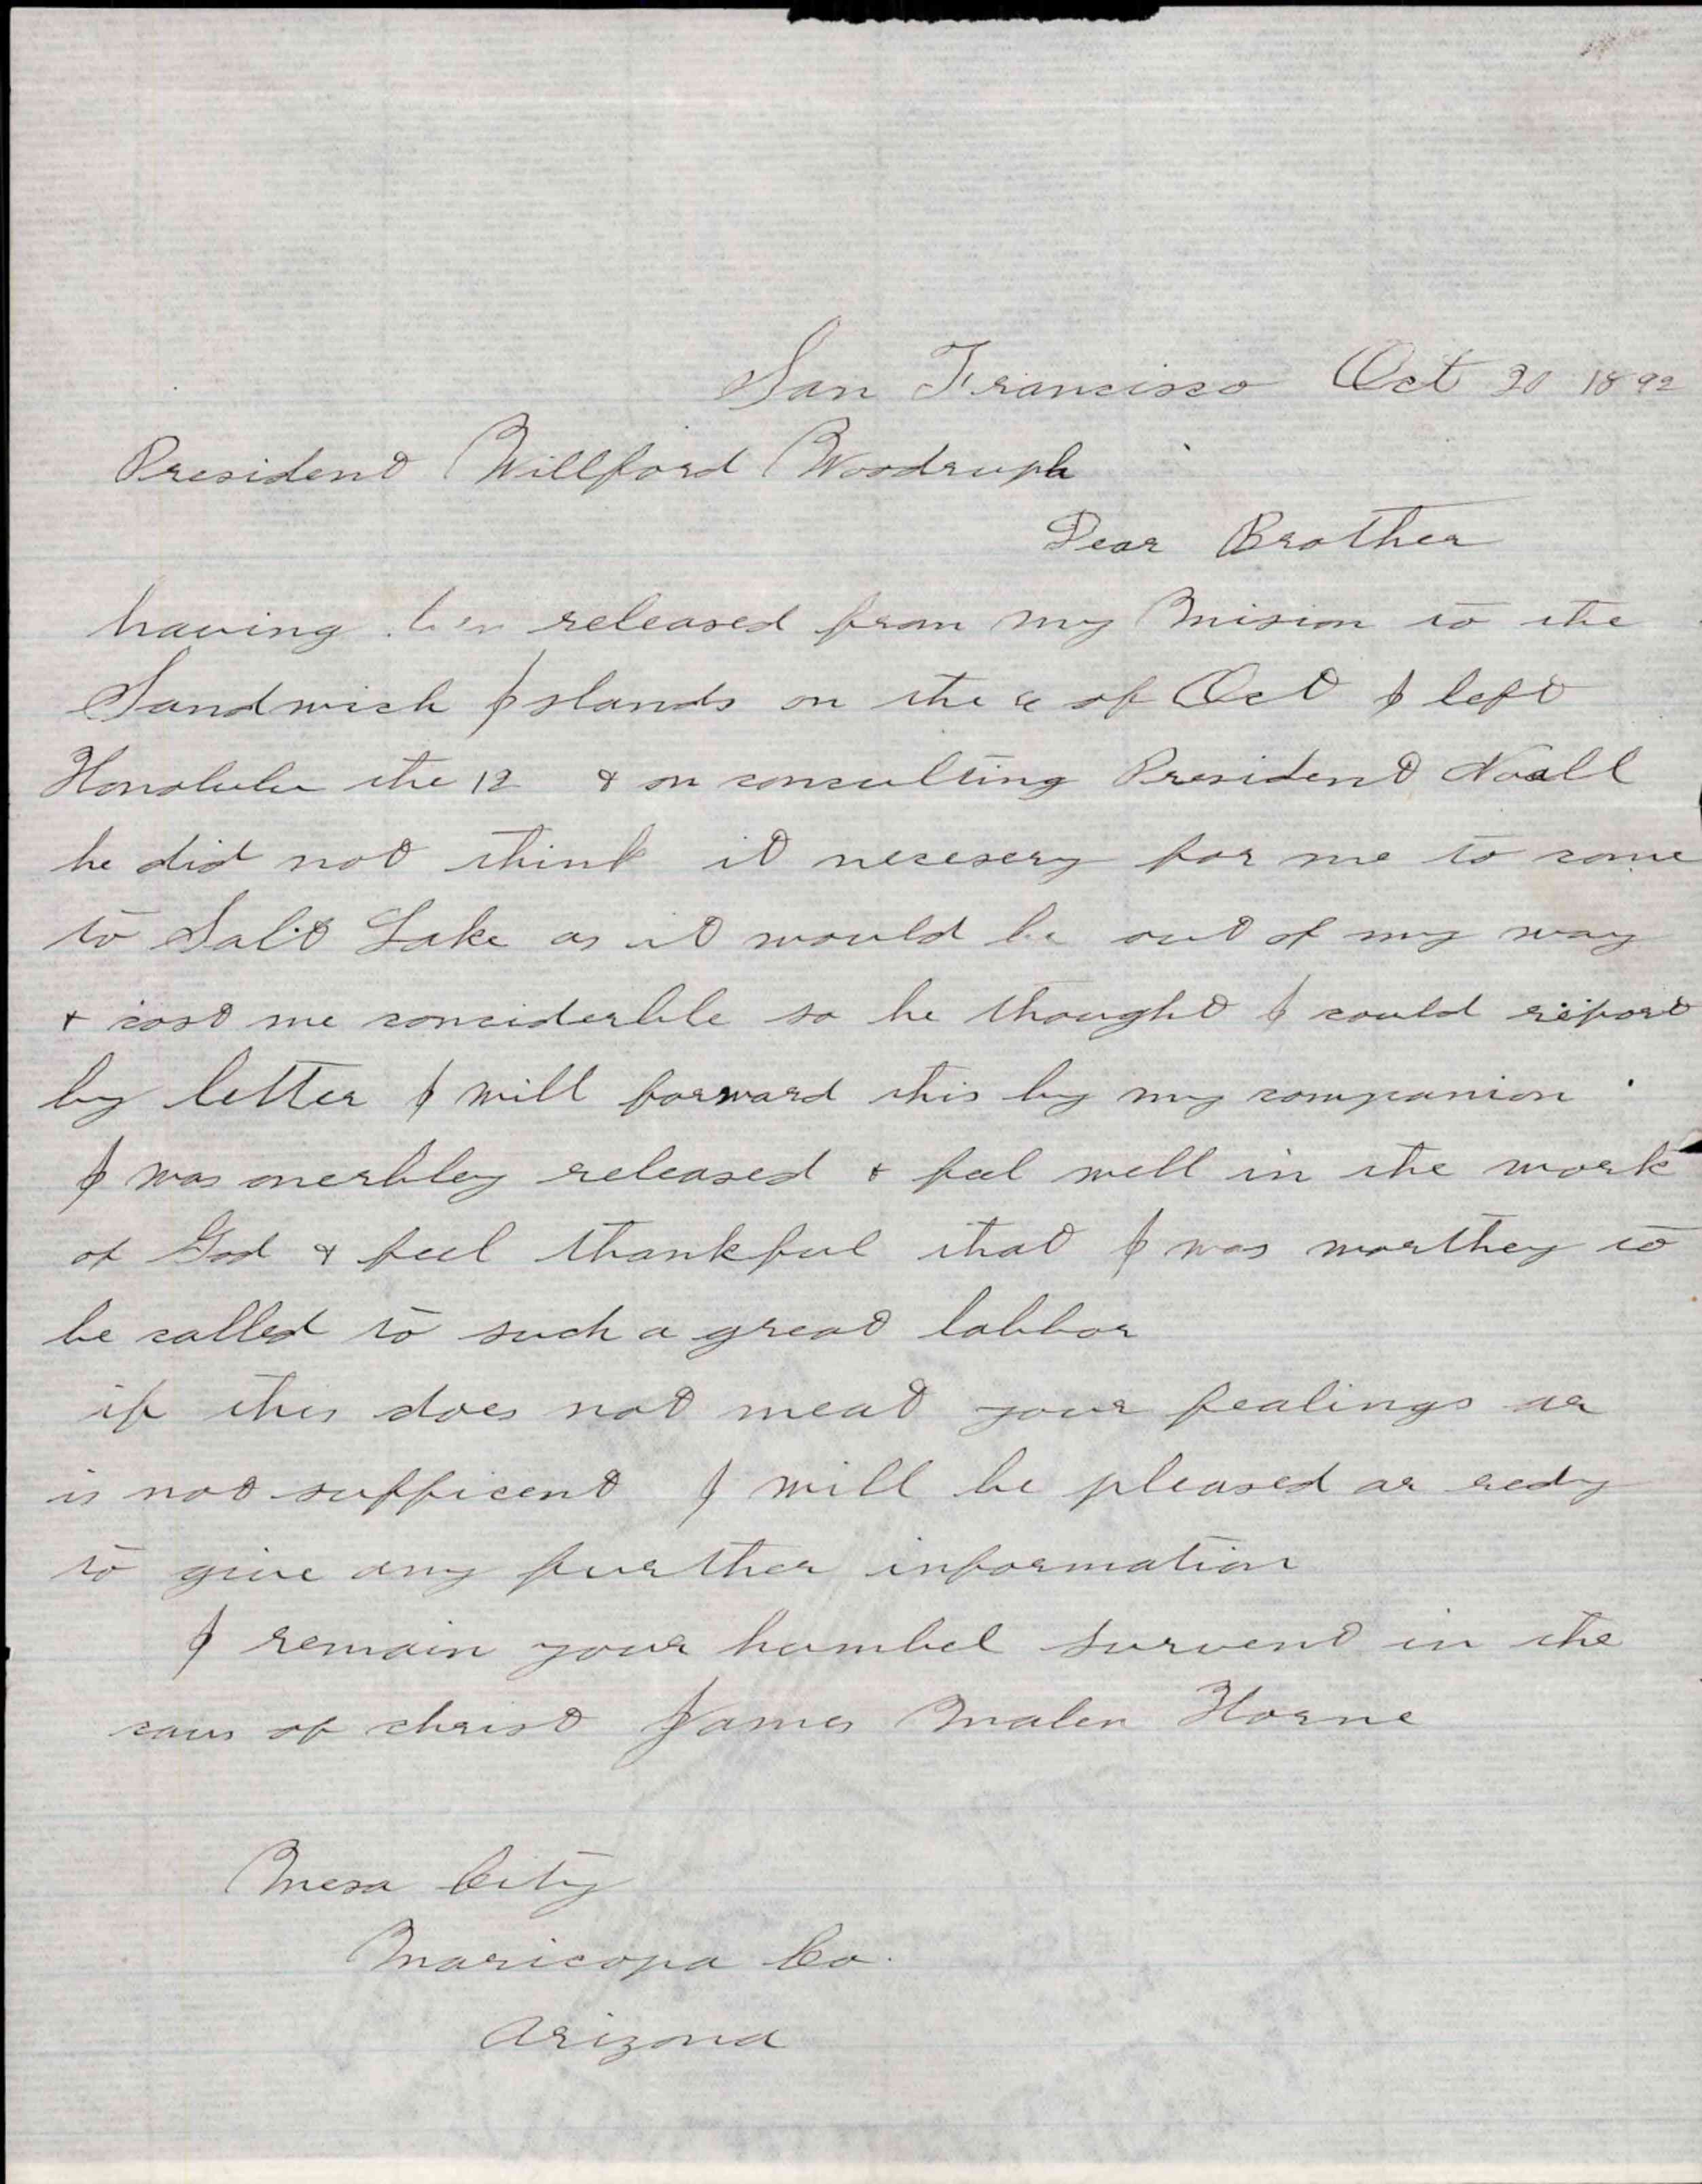 San Francisco Oct 20 1892
President Willford Woodruph
Dear Brother
having ben released from my Mision to the
Sandwich Islands on the of Oct I left
Honolulu the 12 & on consulting President Noall
he did not think it necesery for me to come
to Salt Lake as it would be out of my way
& cost me considerble so he thought I could report
by letter I will forward this by my companion
I was onerbley released & feel well in the work
of God & feel thankful that I was worthey to
be called to such a great labbor
if this does not meat your fealings or
is not sufficent I will be pleased or redy
to give any further information
I remain your humbel survent in the
caus of christ James Malen Horne
Mesa City
Maricopa Co.
Arizona